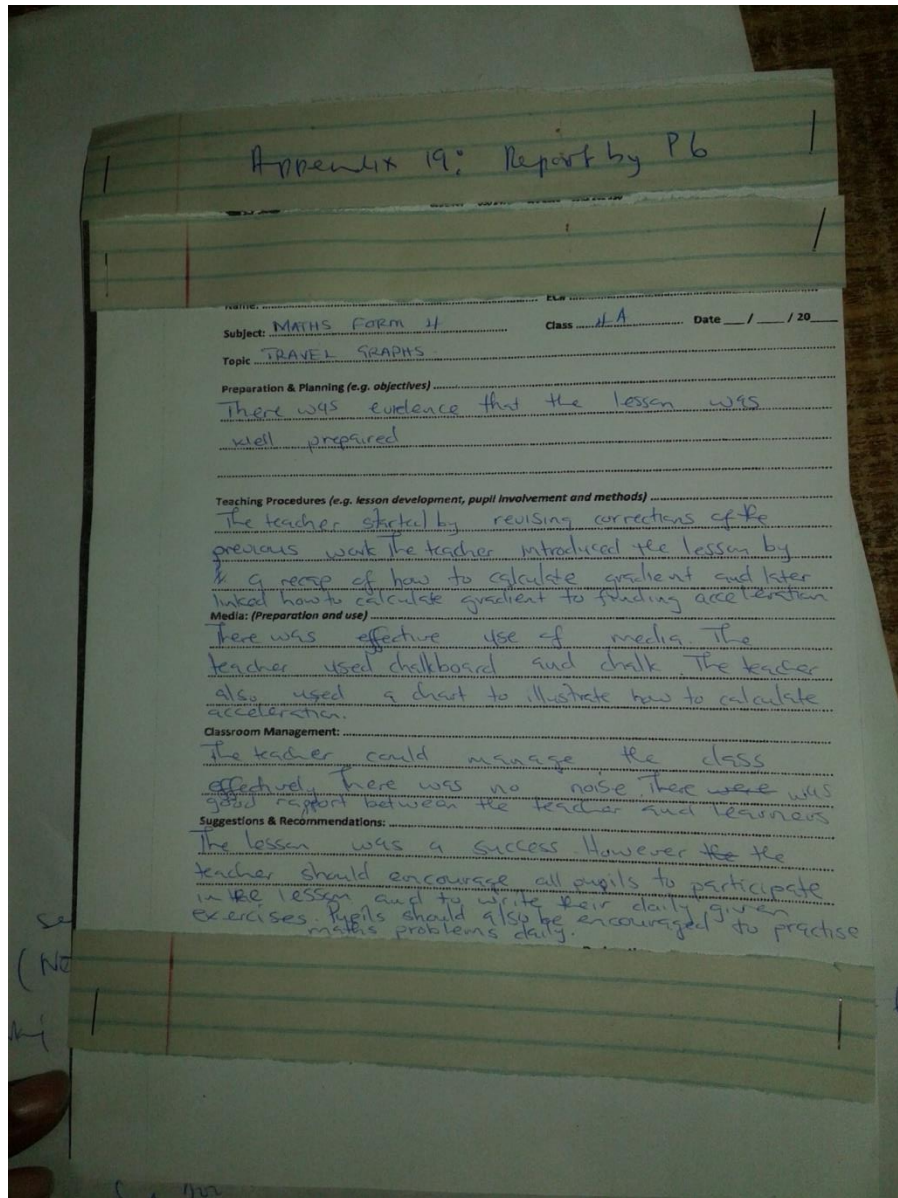 Appendix 19: Report by P6
Name:
Subject: MATHS FORM 4 Class 4A Date __/__/20__
Topic TRAVEL GRAPHS
Preparation & Planning (e.g. objectives)
There was evidence that the lesson was
well prepared
Teaching Procedures (e.g. lesson development, pupil involvement and methods)
The teacher started by revising corrections of the
previous work The teacher introduced the lesson by
a recap of how to calculate gradient and later
linked how to calculate gradient to finding acceleration
Media: (Preparation and use)
There was effective use of media. The
teacher used chalkboard and chalk. The teacher
also used a chart to illustrate how to calculate
acceleration.
Classroom Management:
The teacher could manage the class
effectively. There was no noise. There were was
good rapport between the teacher and learners
Suggestions & Recommendations:
The lesson was a success. However the the
teacher should encourage all pupils to participate
in the lesson and to write their daily given
exercises. Pupils should also be encouraged to practise
maths problems daily.
se
(No